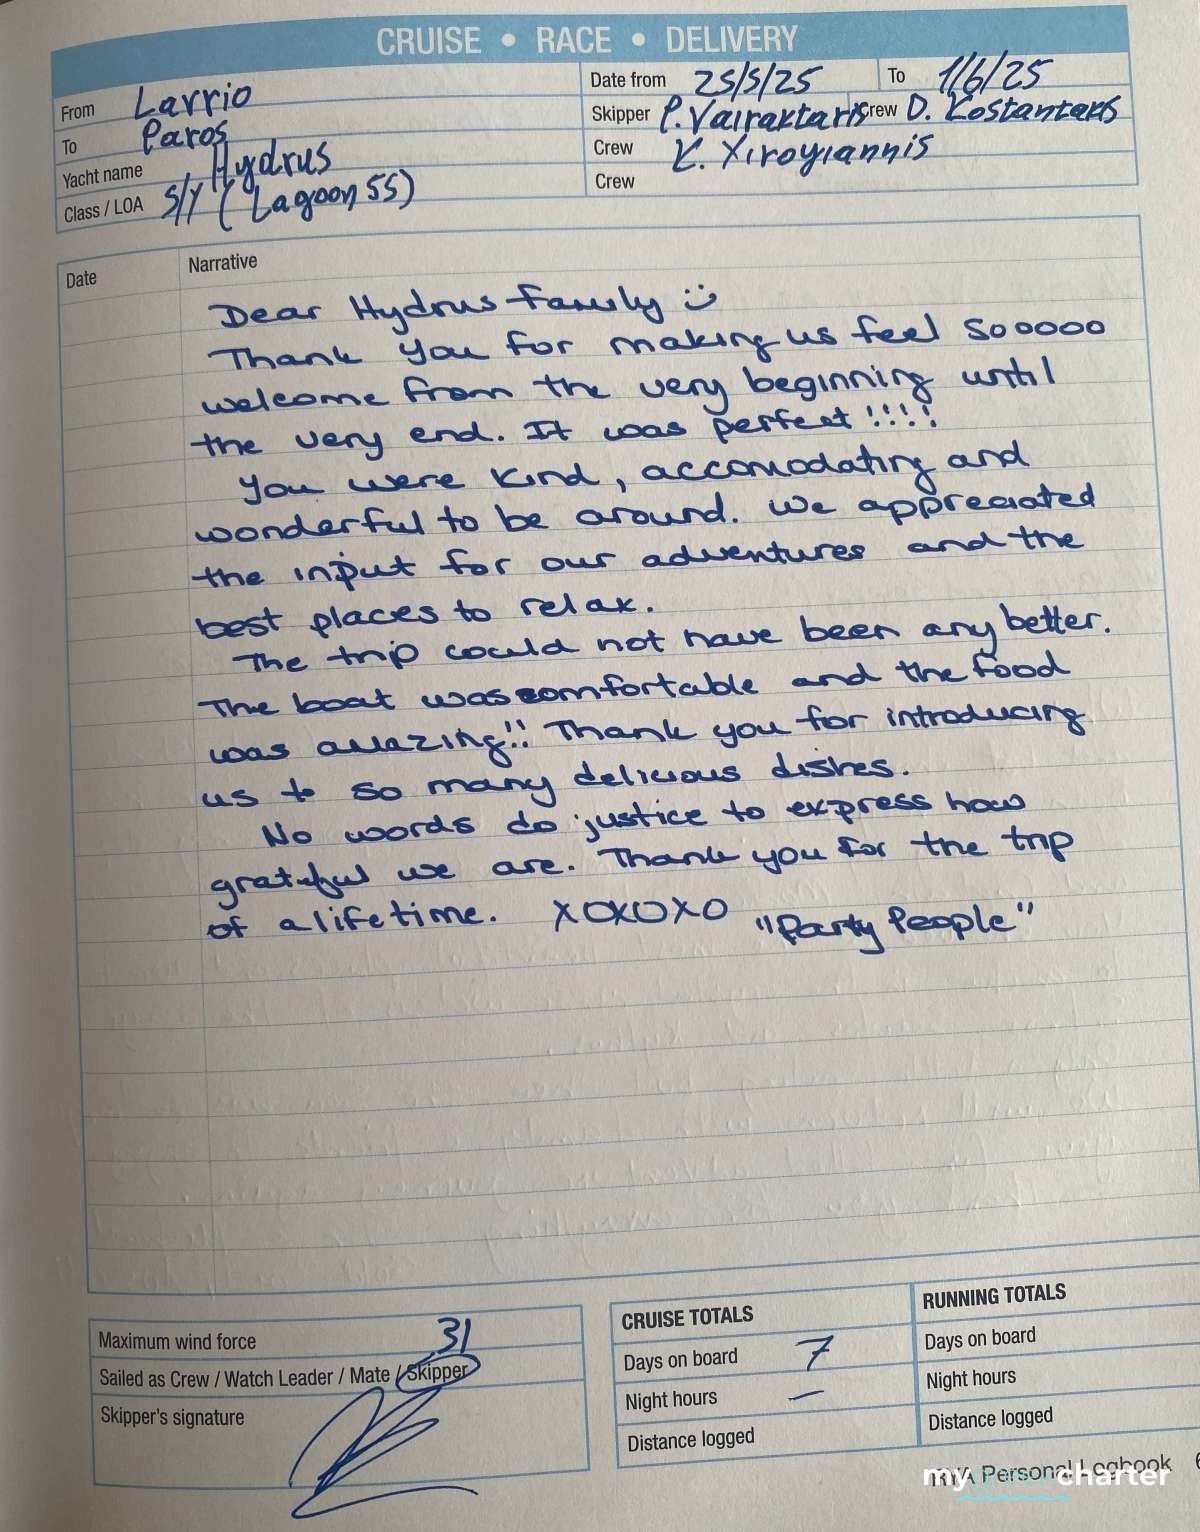 CRUISE • RACE • DELIVERY
From Lavrio
To Paros
Yacht name Hydrus
Class / LOA S/Y (Lagoon 55)
Date from 25/5/25 To 1/6/25
Skipper P. Vairaktaris Crew D. Kostantakis
Crew K. Xiroyiannis
Crew
Date Narrative
Dear Hydrus family
Thank you for making us feel sooooo
welcome from the very beginning until
the very end. It was perfect!!!!
You were kind, accomodating and
wonderful to be around. We appreciated
the input for our adventures and the
best places to relax.
The trip could not have been any better.
The boat was comfortable and the food
was amazing!! Thank you for introducing
us to so many delicious dishes.
No words do justice to express how
grateful we are. Thank you for the trip
of a lifetime. XOXOXO "Party People"
Maximum wind force 31
Sailed as Crew / Watch Leader / Mate / Skipper
Skipper's signature
CRUISE TOTALS
Days on board 7
Night hours —
Distance logged
RUNNING TOTALS
Days on board
Night hours
Distance logged
RYA Personal Logbook 6
my charter